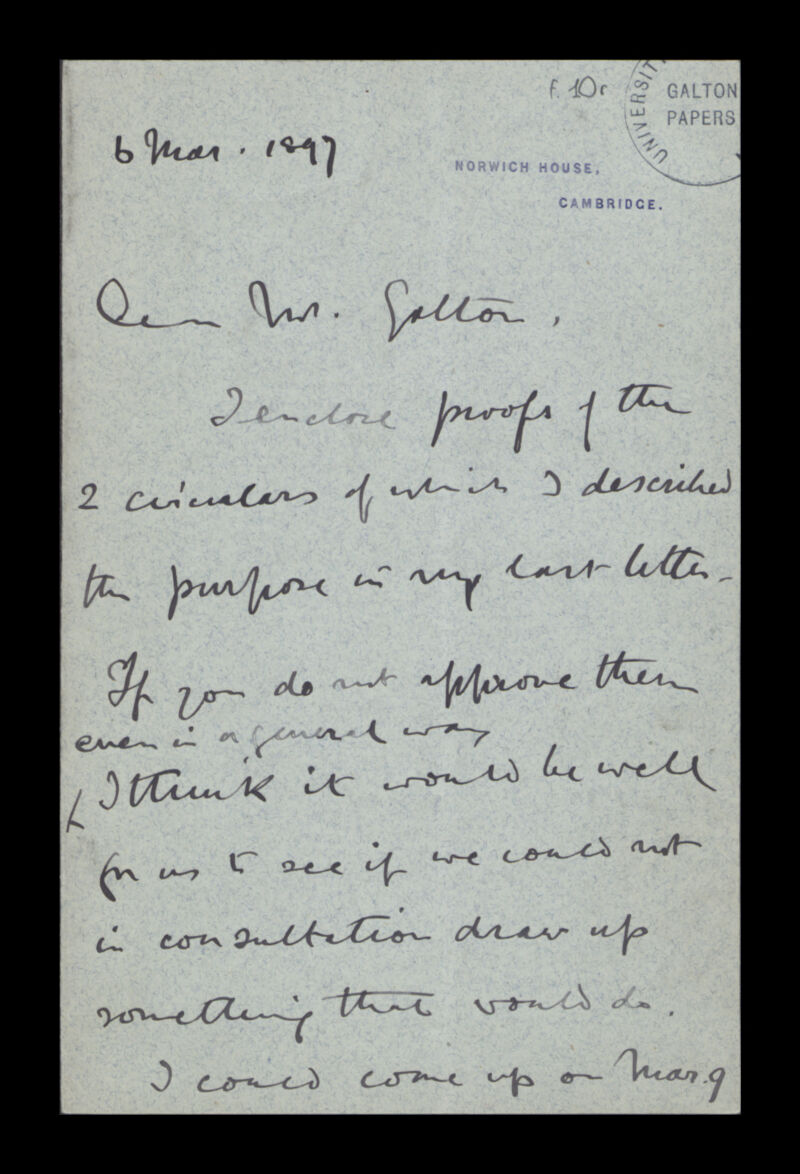 f. 10r
UNIVERSIT
GALTON
PAPERS
6 Mar. 1897
NORWICH HOUSE,
CAMBRIDGE.
Dear Mr. Galton,
I enclose proofs of the
2 circulars of which I described
the purpose in my last letter.
If you do not approve them
even in a general way
I think it would be well
for us to see if we could not
in consultation draw up
something that would do.
I could come up on Mar. 9